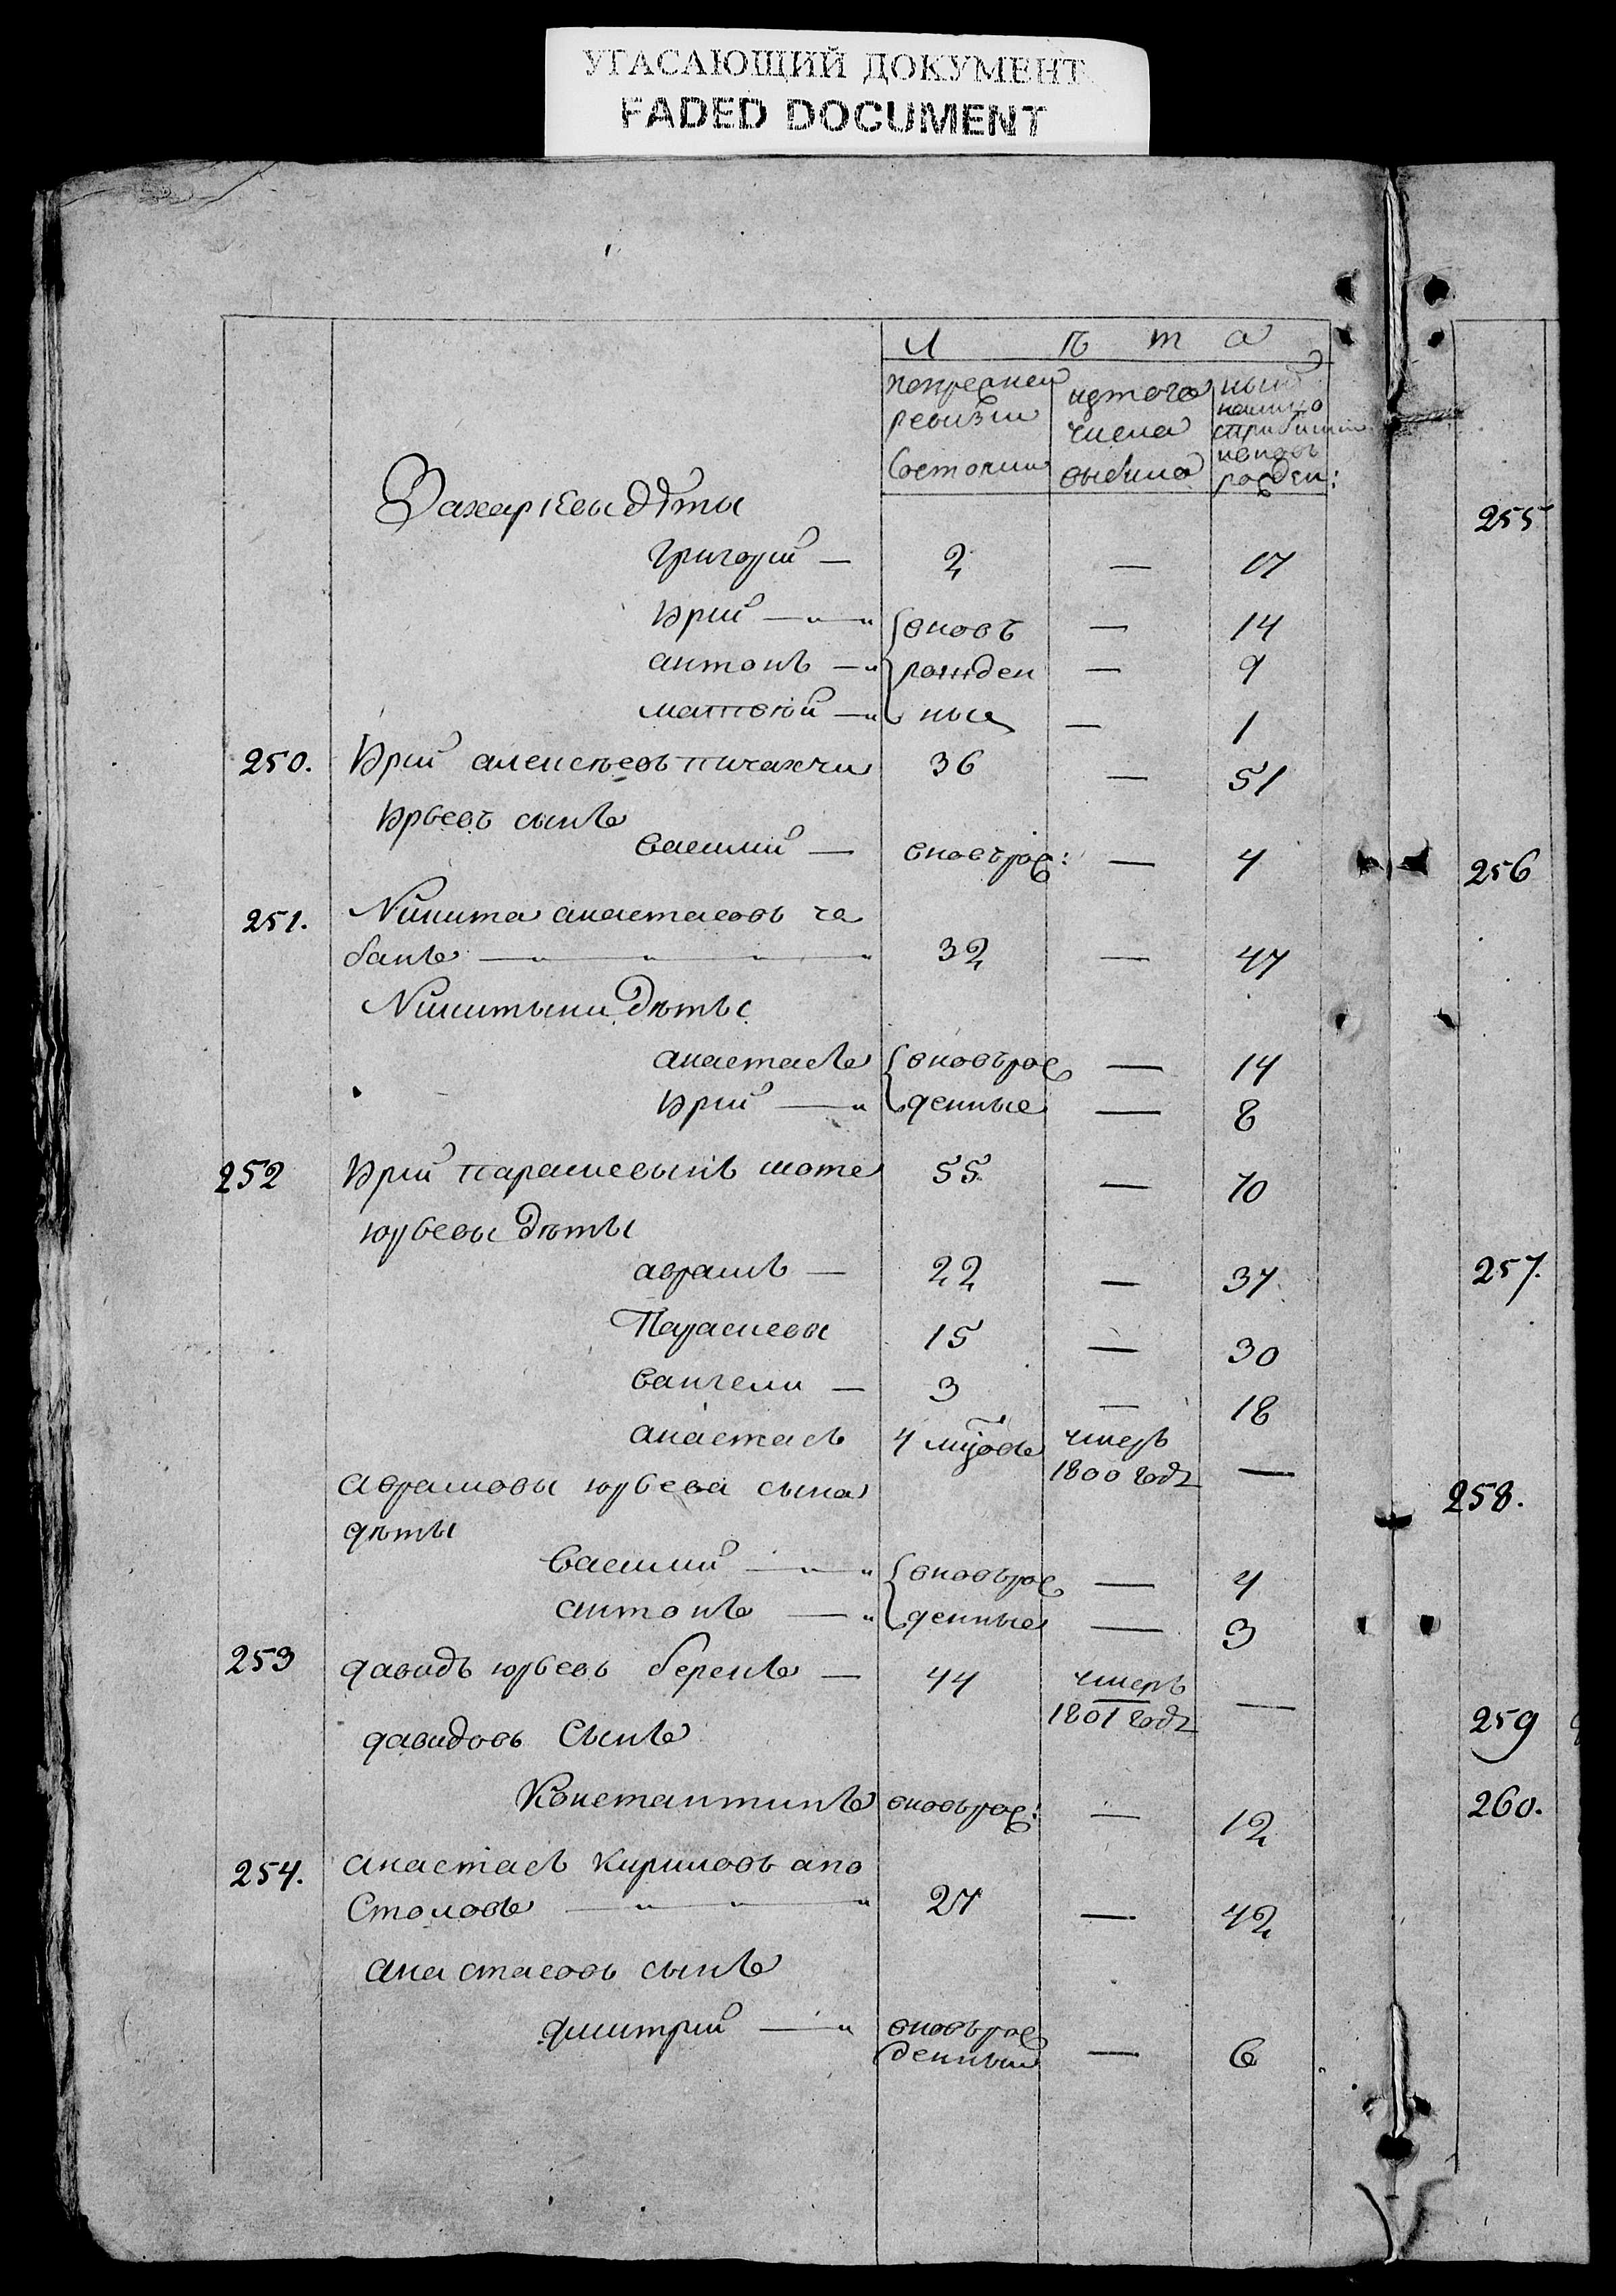 УГАСАЮЩИЙ ДОКУМЕНТ
FADED DOCUMENT
Л ѣ т а
попрежней ревизіи состояли
изтого числа выбыло
ныне налицо сприбылыми ивновь рожден:
Захарьевы дѣты
григорій — 2 — 17
Юрій — вновь — 14
антонъ — рожден — 9
матвѣй — ные — 1
250. Юрій алексѣевъ пичахчи 36 — 51
Юрьевъ сынъ
василій — вновьрож: — 4
251. Никита анастасовъ ча
банъ — 32 — 47
Никитыни дѣты
анастасъ вновьрож — 14
Юрій — денные — 8
252 Юрій параскевынъ шоте 55 — 70
юрьевы дѣты
аврамъ — 22 — 37
Параскева 15 — 30
вангели — 3 — 18
анастасъ 4 мцовъ умеръ
1800 году —
аврамовы юрьева сына
дѣты
василій — вновьрож — 4
антонъ — денные — 3
253 давидъ юрьевъ берекъ — 44 умеръ
1801 году —
давидовъ сынъ
Константинъ вновьрож: — 12
254. анастасъ кириловъ апо
столовъ — 27 — 42
анастасовъ сынъ
дмитрій — вновьрож
денный — 6
255
256
257.
258.
259
260.